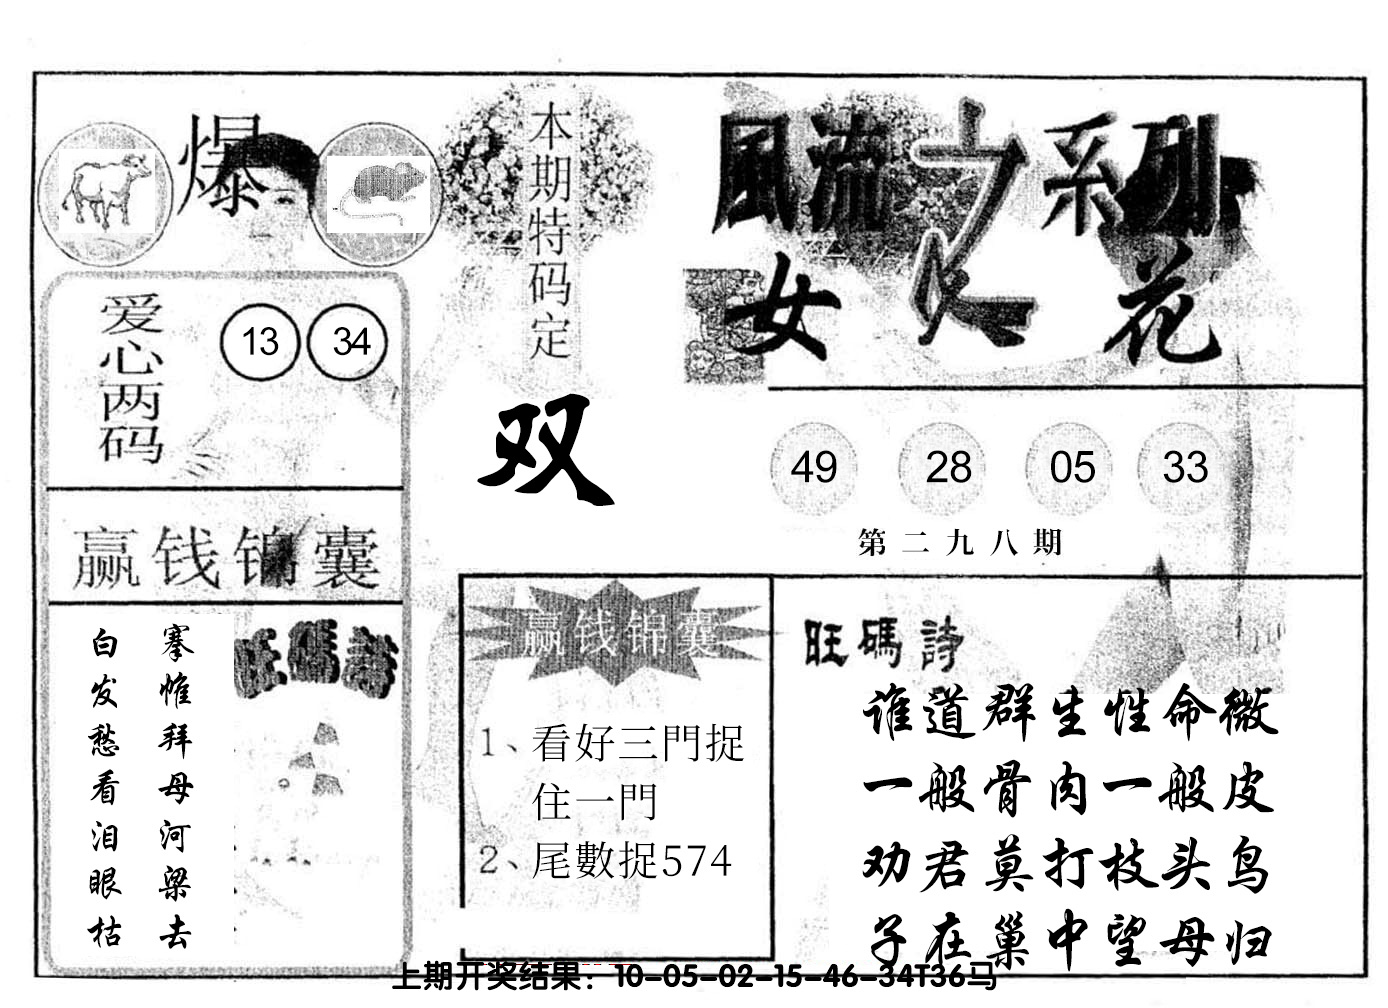 爆
本期特码定
双
風流之系列
女人花
爱心两码
13 34
49 28 05 33
第二九八期
赢钱锦囊
搴帷拜母河梁去
白发愁看泪眼枯
旺碼詩
赢钱锦囊
1、看好三門捉
住一門
2、尾數捉574
旺碼詩
谁道群生性命微
一般骨肉一般皮
劝君莫打枝头鸟
子在巢中望母归
上期开奖结果：10-05-02-15-46-34T36马